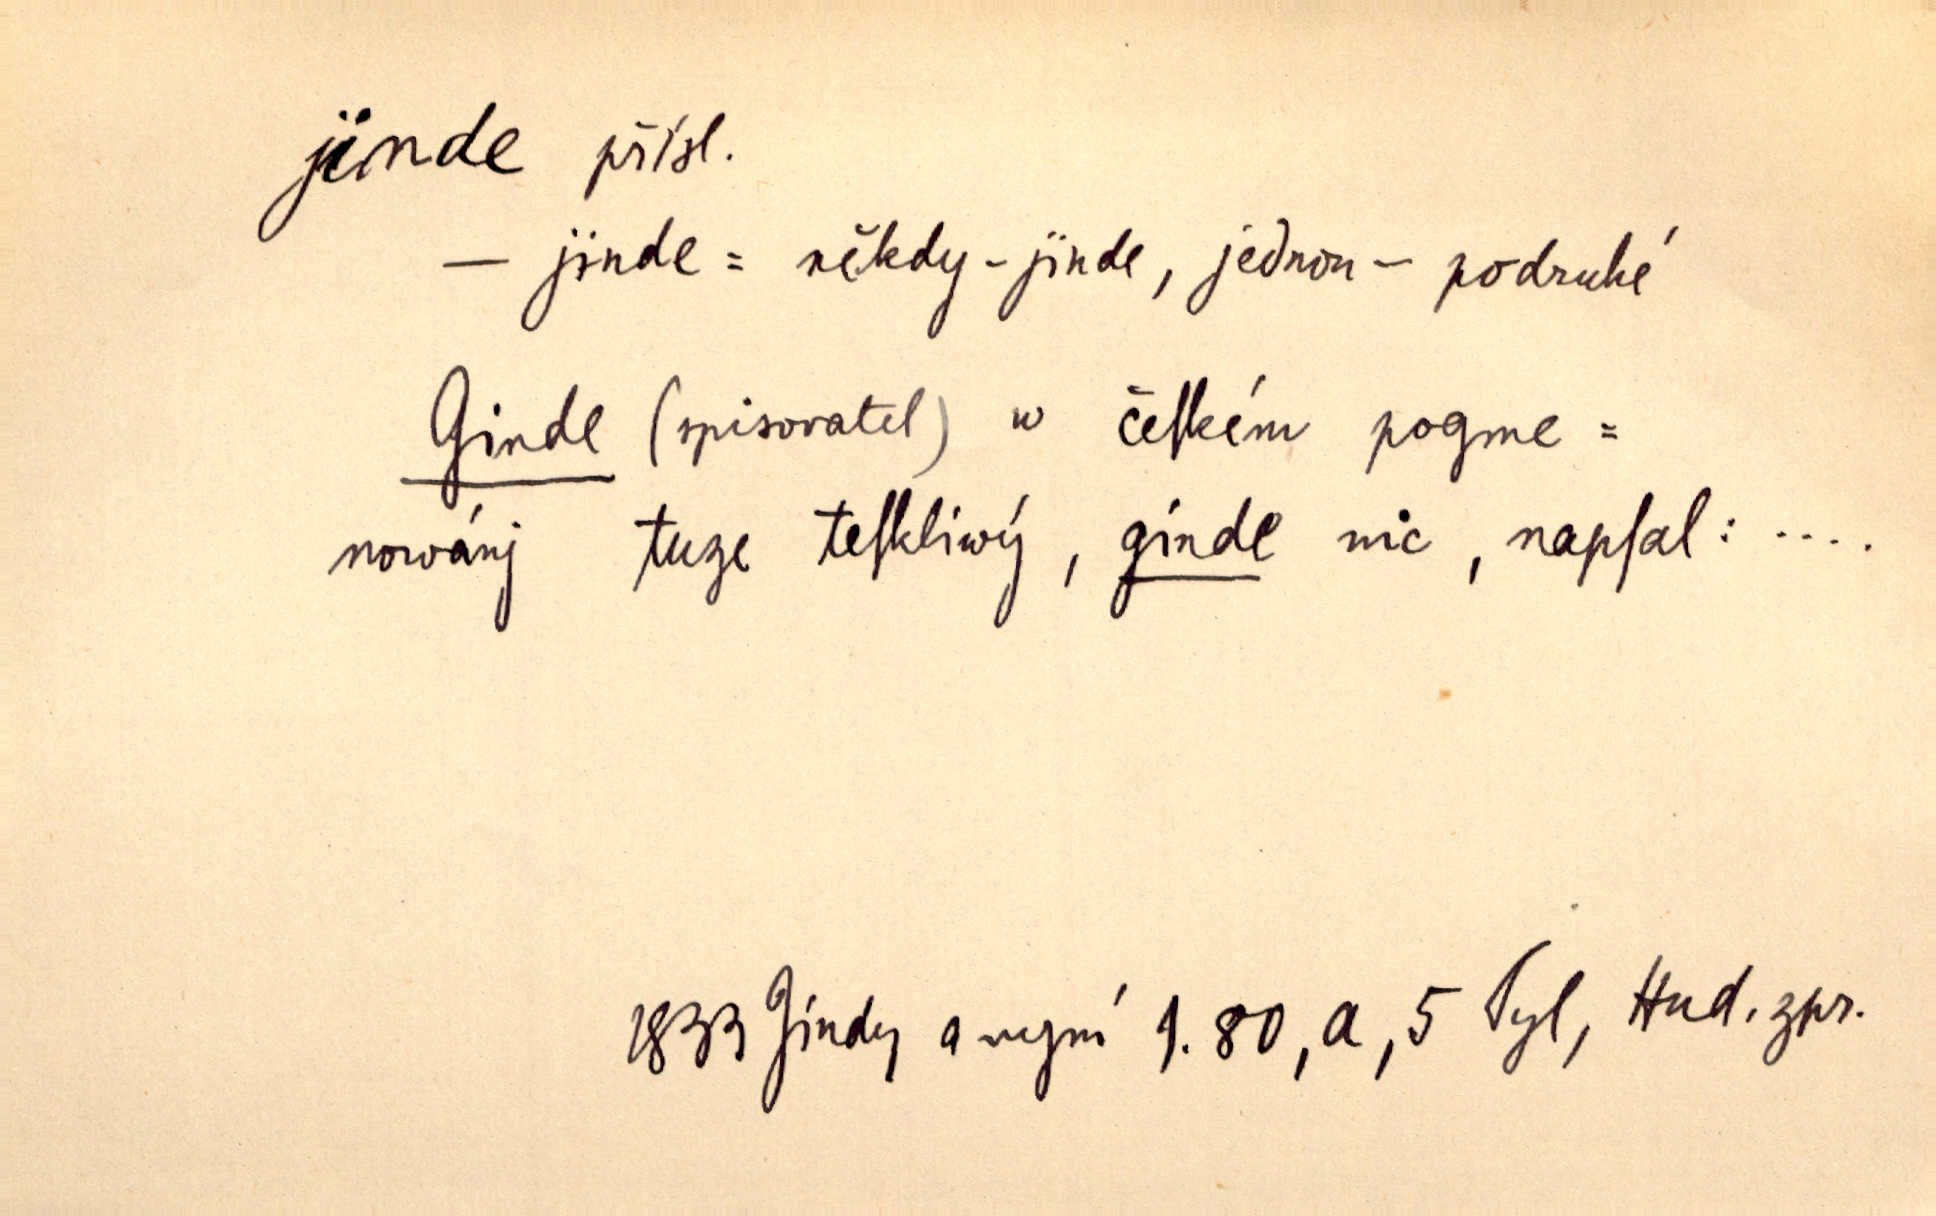 jinde přísl.
— jinde = někdy - jinde, jednou - podruhé
Ginde (spisovatel) w čeſkém pogme =
nowánj tuze teſkliwý, ginde nic, napſal: ....
1833 Gindy a nyní 1. 80, a, 5 Tyl, Hud. zpr.